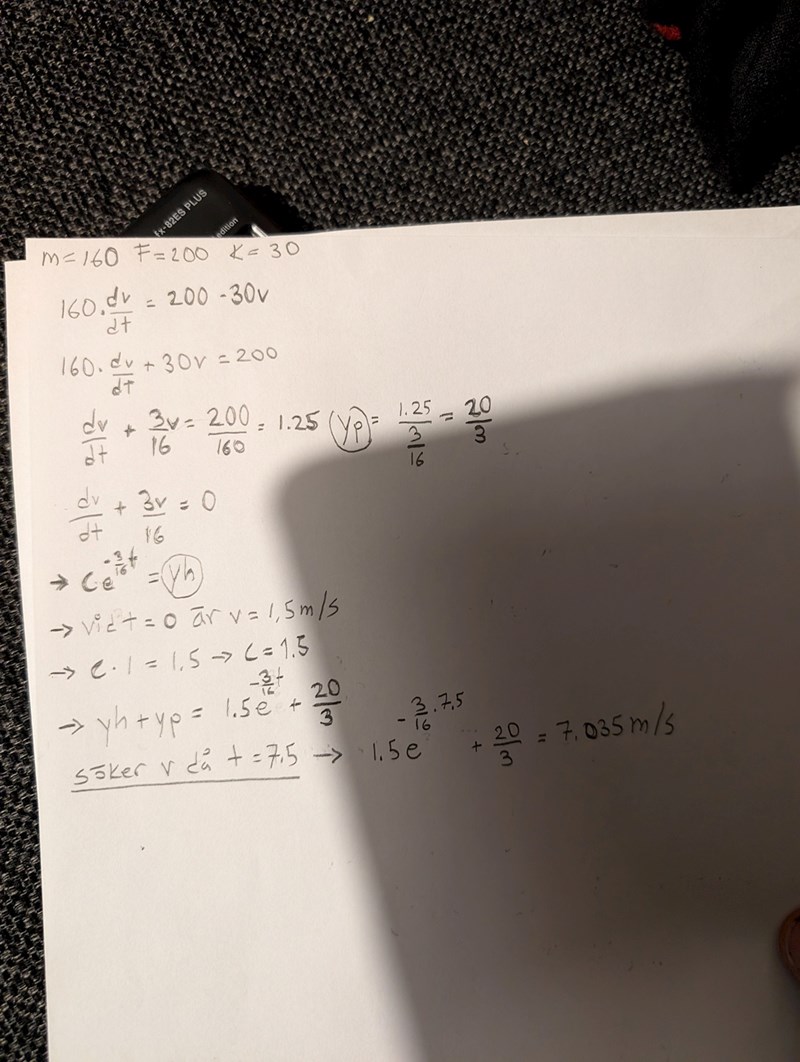 fx-82ES PLUS
edition
m=160 F=200 K=30
160·dv/dt = 200 -30v
160·dv/dt + 30v = 200
dv/dt + 3v/16 = 200/160 = 1.25 (yp) = 1.25/(3/16) = 20/3
dv/dt + 3v/16 = 0
→ Ce^(-3/16 t) = (yh)
→ vid t=0 är v=1,5m/s
→ C·1 = 1.5 → C=1.5
→ yh+yp = 1.5e^(-3/16 t) + 20/3
söker v då t=7.5 → 1.5e^(-3/16·7.5) + 20/3 = 7.035m/s